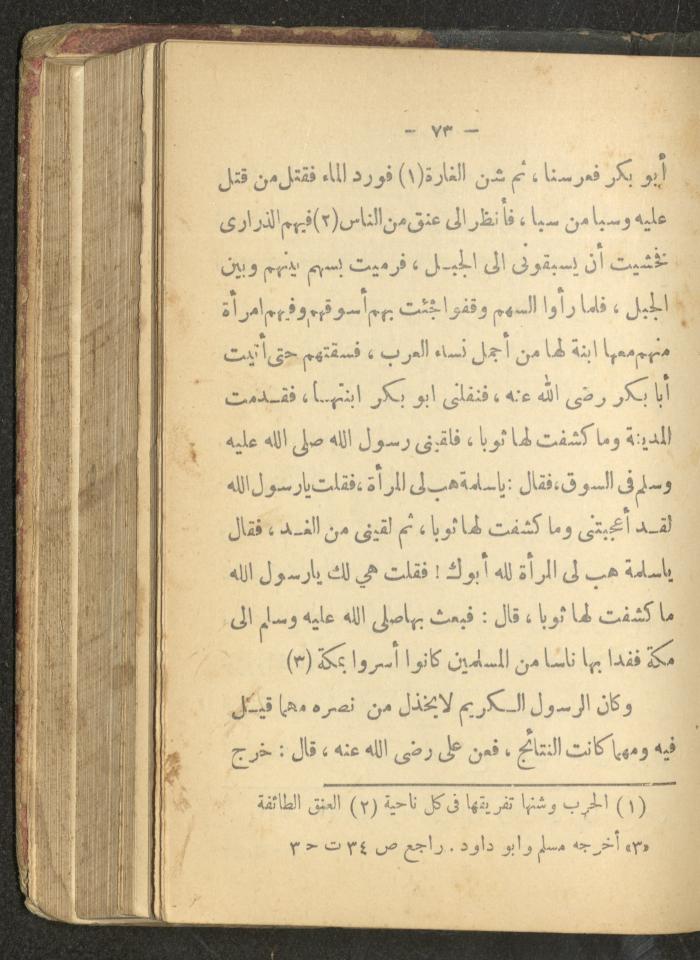 — ٧٣ —
أبو بكر فعرسنا ، ثم شن الغارة(١) فورد الماء فقتل من قتل
عليه وسبا من سبا ، فأنظر الى عنق من الناس(٢) فيهم الذرارى
فخشيت أن يسبقونى الى الجبل ، فرميت بسهم بينهم وبين
الجبل ، فلما رأوا السهم وقفوا جئت بهم أسوقهم وفيهم امرأة
منهم معها ابنة لها من أجمل نساء العرب ، فسقتهم حتى أتيت
أبا بكر رضى الله عنه ، فنفلنى ابو بكر ابنتها ، فقدمت
المدينة وما كشفت لها ثوبا ، فلقينى رسول الله صلى الله عليه
وسلم فى السوق ، فقال : ياسلمة هب لى المرأة ، فقلت يارسول الله
لقد أعجبتنى وما كشفت لها ثوبا ، ثم لقينى من الغد ، فقال
ياسلمة هب لى المرأة لله أبوك ! فقلت هي لك يارسول الله
ما كشفت لها ثوبا ، قال : فبعث بها صلى الله عليه وسلم الى
مكة ففدا بها ناسا من المسلمين كانوا أسروا بمكة (٣)
وكان الرسول الكريم لايخذل من نصره مهما قيل
فيه ومهما كانت النتائج ، فعن على رضى الله عنه ، قال : خرج
(١) الحرب وشنها تفريقها فى كل ناحية (٢) العنق الطائفة
«٣» أخرجه مسلم وابو داود . راجع ص ٣٤ ت ح ٣